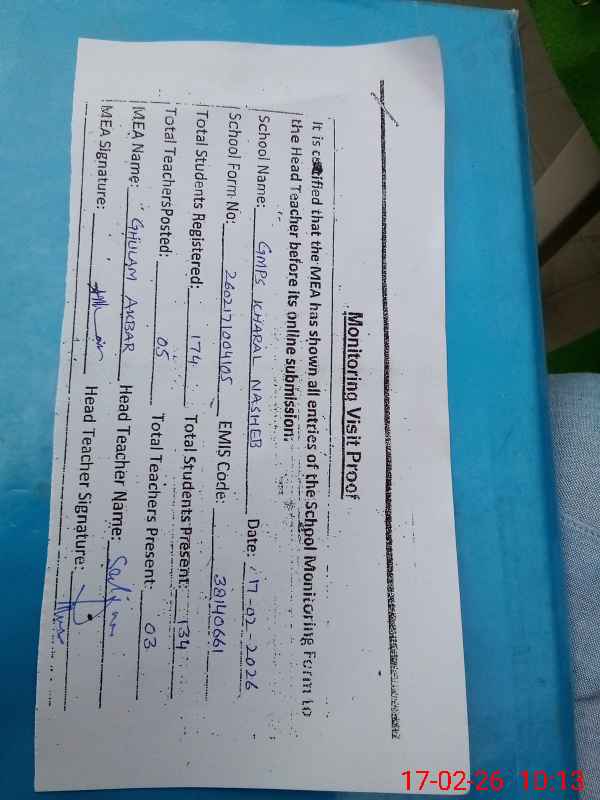 Monitoring Visit Proof
It is certified that the MEA has shown all entries of the School Monitoring Form to
the Head Teacher before its online submission.
School Name: GMPS KHARAL NASHEB Date: 17-02-2026
School Form No: 2602171004105 EMIS Code: 38140661
Total Students Registered: 174 Total Students Present: 134
Total TeachersPosted: 05 Total Teachers Present: 03
MEA Name: GHULAM AKBAR Head Teacher Name:
MEA Signature: Head Teacher Signature:
17-02-26 10:13